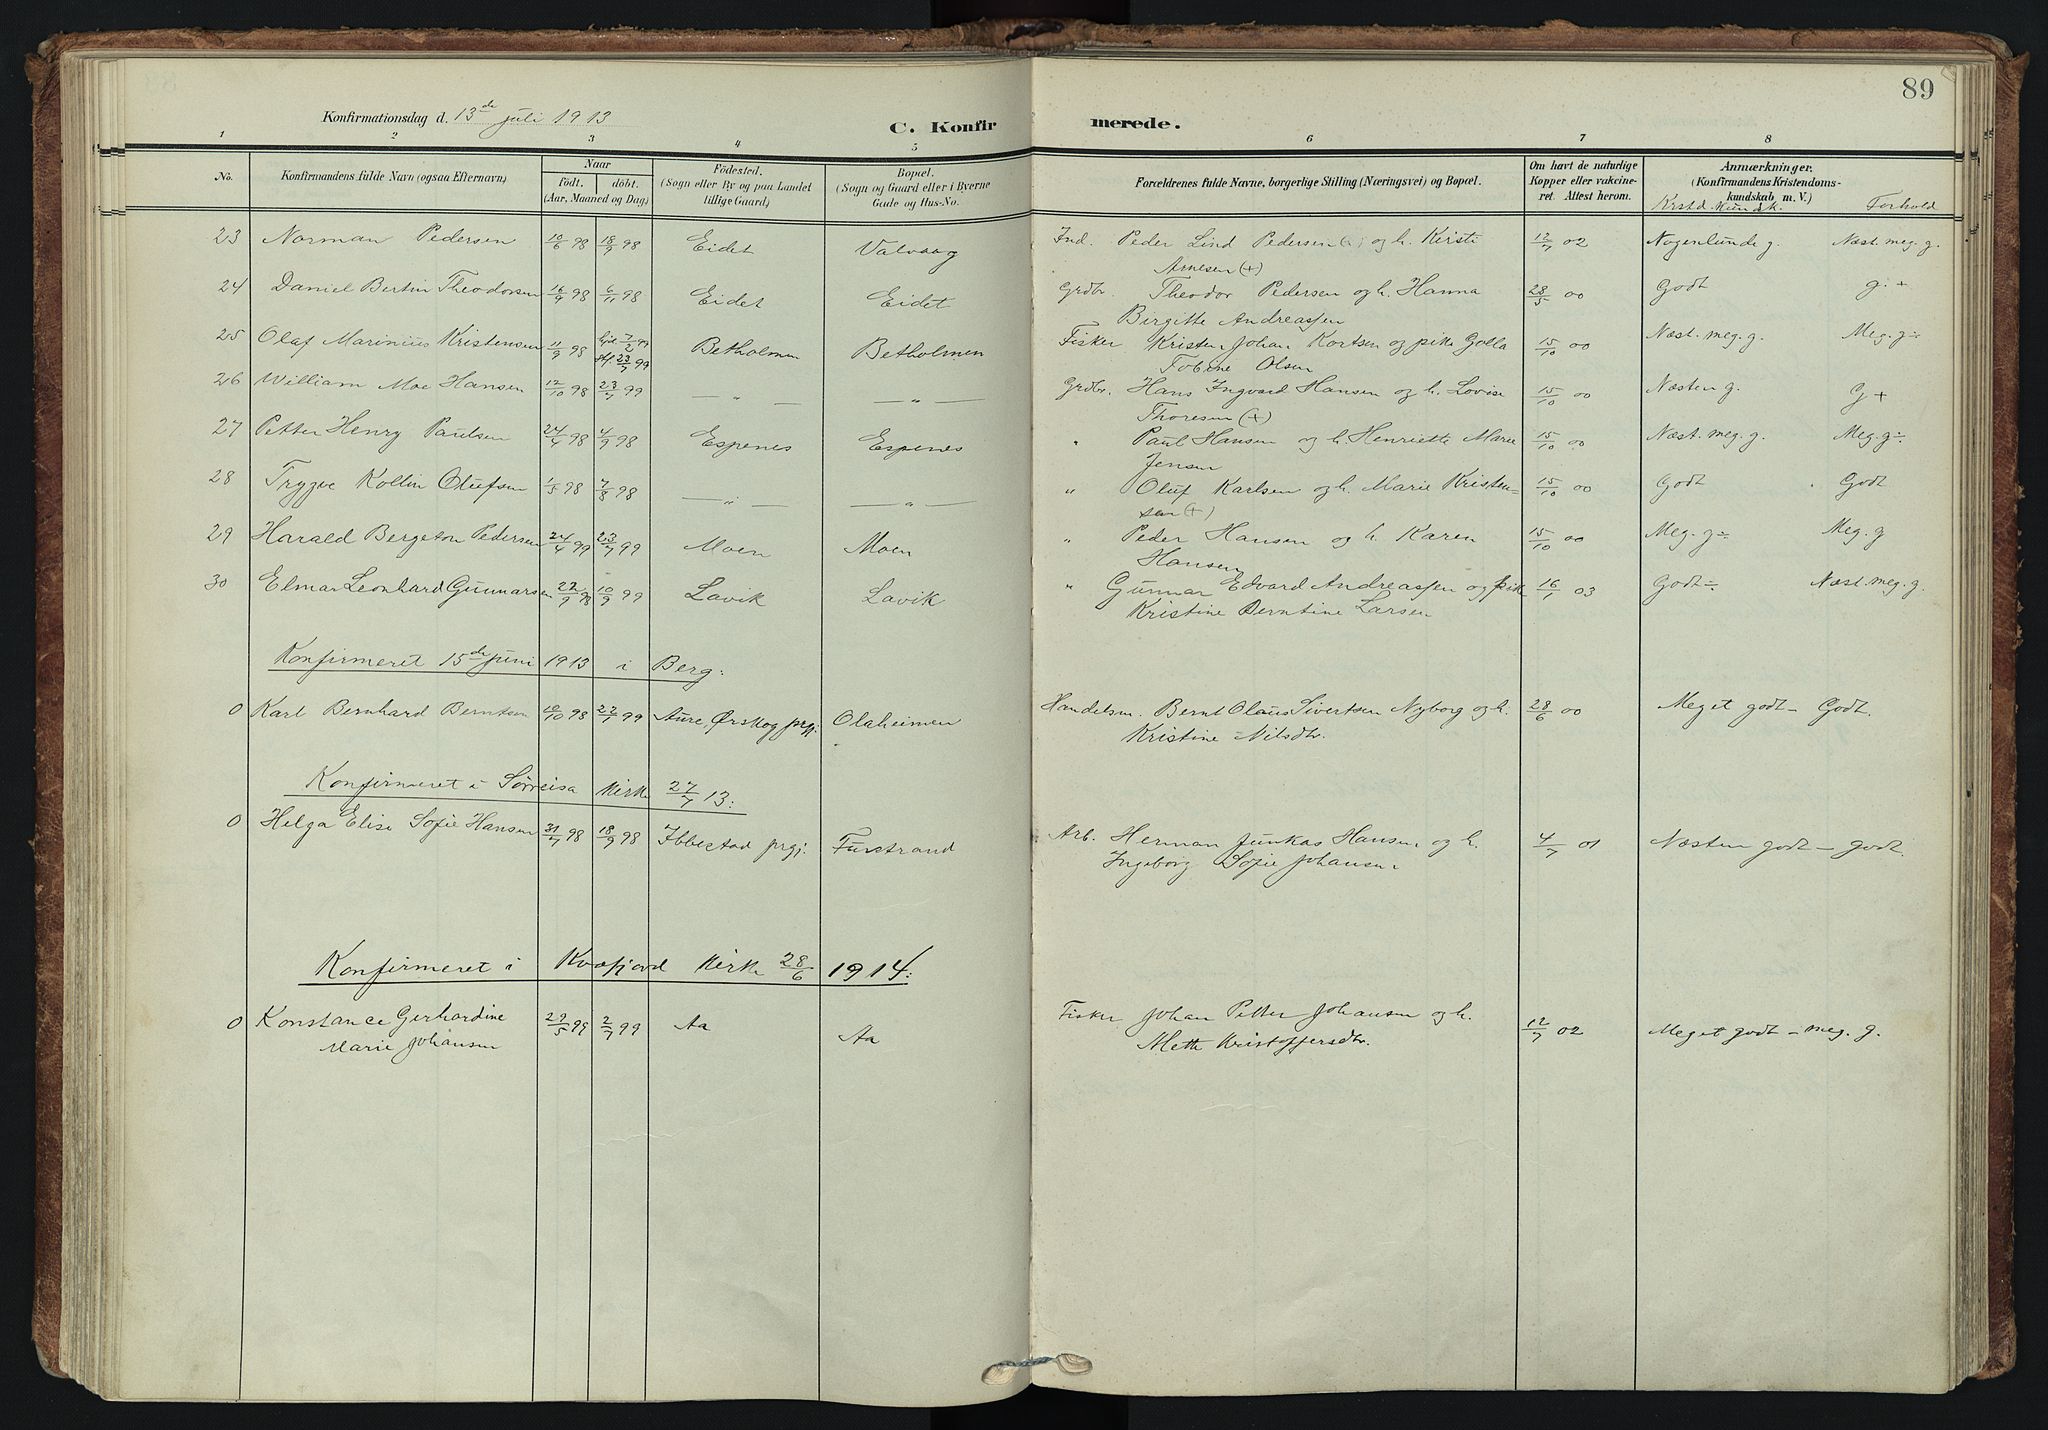 89
Konfirmationsdag d. 13de juli 1913
C. Konfir merede.
1 2 3 4 5 6 7 8
No. Konfirmandens fulde Navn (ogsaa Efternavn) Naar födt. döbt. (Aar, Maaned og Dag) Födested. (Sogn eller By og paa Landet tillige Gaard) Bopæl. (Sogn og Gaard eller i Byerne Gade og Hus-No. Forældrenes fulde Navne, borgerlige Stilling (Næringsvei) og Bopæl. Om havt de naturlige Kopper eller vakcineret. Attest herom. Anmærkninger. (Konfirmandens Kristendomskundskab m. V.)
Krstd. Kundsk. Forhold
23 Norman Pedersen 10/6 98 18/9 98 Eidet Valvaag Ind. Peder Lind Pedersen (+) og h. Kirsti 12/7 02 Nogenlunde g. Næst. meg. g.
Arnesen (+)
24 Daniel Bertin Theodorsen 16/9 98 6/11 98 Eidet Eidet Grdbr. Theodor Pedersen og h. Hanna 28/5 00 Godt g. +
Birgitte Andreassen
25 Olaf Marinius Kristensen 11/9 98 hjd. 7/2 99 Betholmen Betholmen Fisker Kristen Johan Kortsen og pike Golla 15/10 00 Næst. meg. g. Meg. g ÷
stf. 23/7 99 Tobine Olsen
26 William Moe Hansen 12/10 98 23/7 99 — " — — " — Grdbr. Hans Ingvard Hansen og h. Lovise 15/10 00 Næsten g. G +
Thoresen (+)
27 Petter Henry Paulsen 24/4 98 4/9 98 Espenes Espenes " Paul Hansen og h. Henriette Marie 15/10 00 Næst. meg. g. Meg. g ÷
Jensen
28 Trygve Kollin Olufsen 1/5 98 7/8 98 — " — — " — " Oluf Karlsen og h. Marie Kristen=
sen (+) 15/10 00 Godt Godt
29 Harald Bergeton Pedersen 24/4 99 23/7 99 Moen Moen " Peder Hansen og h. Karen 15/10 00 Meg. g ÷ Meg. g
Hansen
30 Elmar Leonhard Gunnarsen 22/9 98 10/9 99 Lavik Lavik " Gunnar Edvard Andreassen og pik 16/1 03 Godt ÷ Næst. meg. g.
Kristine Berntine Larsen
Konfirmeret 15de juni 1913 i Berg:
0 Karl Bernhard Berntsen 10/10 98 22/1 99 Aure, Ørskog prgj. Olaheimen Handelsm. Bernt Olaus Sivertsen Nyborg og h. 28/6 00 Meget godt – Godt.
Kristine Nilsdtr.
Konfirmeret i Sørreisa Kirke 27/7 13:
0 Helga Elise Sofie Hansen 31/7 98 18/9 98 Ibbestad prgj. Furstrand Arb. Herman Junkas Hansen og h. 4/7 01 Næsten godt – godt.
Ingeborg Sofie Johansen
Konfirmeret i Kvæfjord Kirke 28/6 1914:
0 Konstance Gerhardine 29/5 99 2/7 99 Aa Aa Fisker Johan Petter Johansen og h. 12/7 02 Meget godt – meg. g.
Marie Johansen Mette Kristoffersdtr.